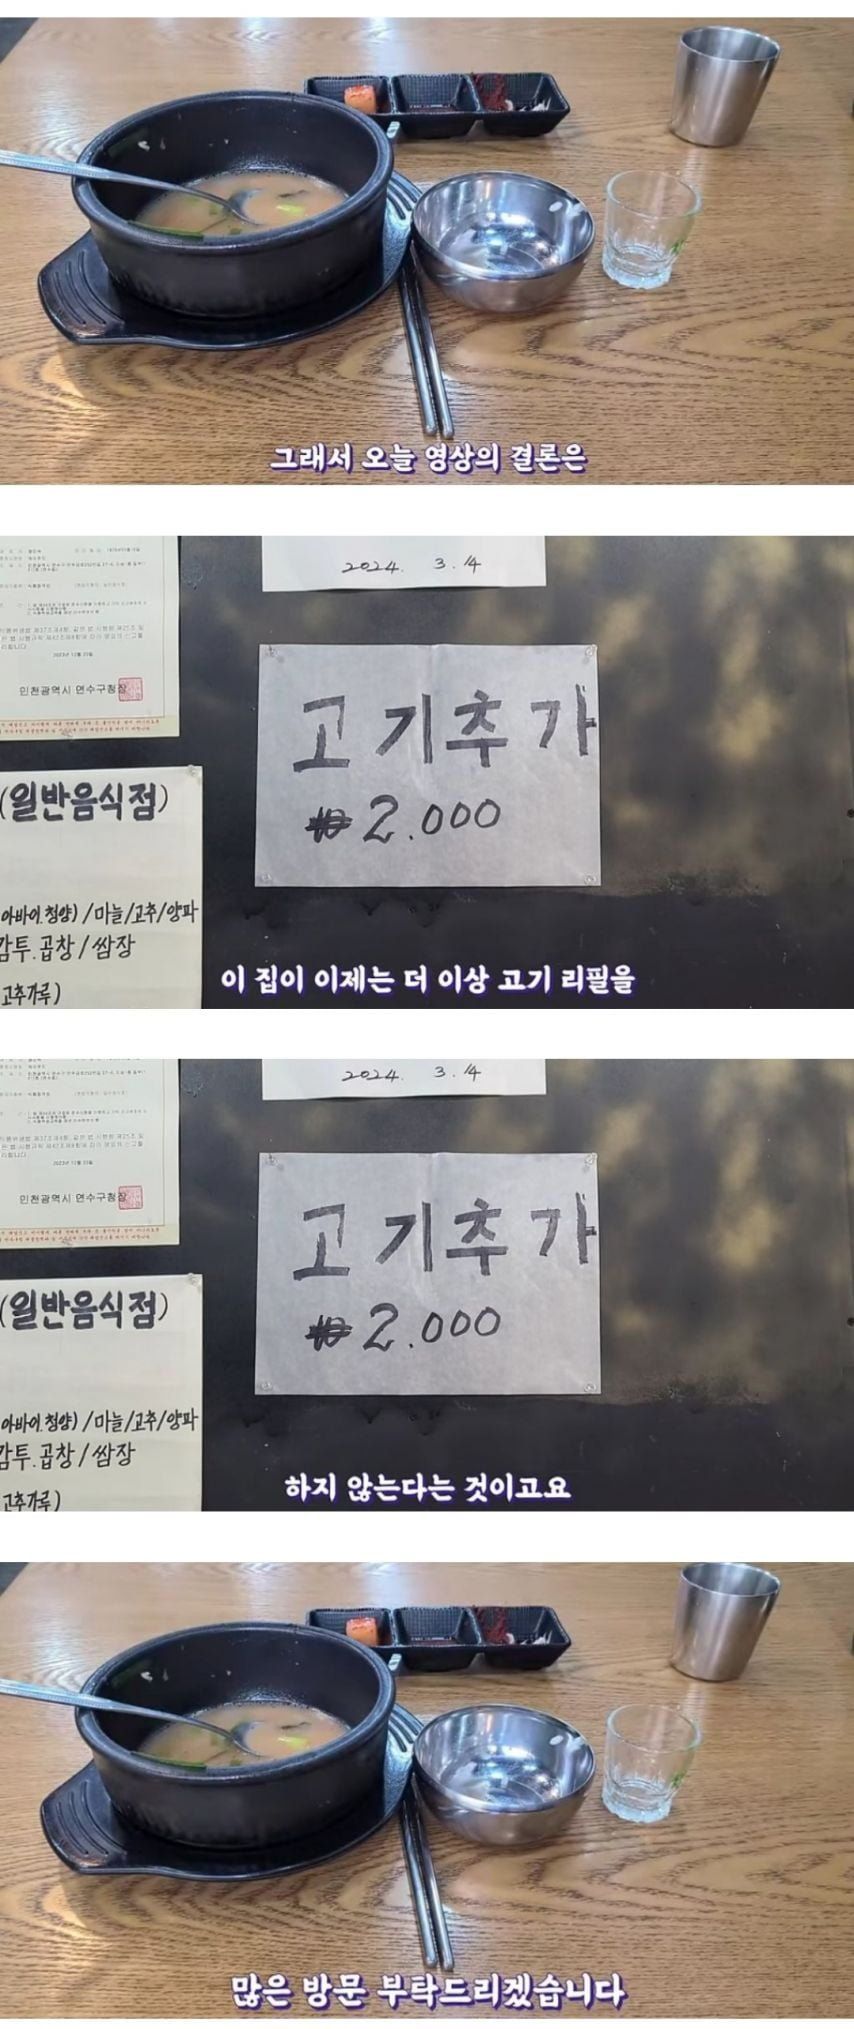 그래서 오늘 영상의 결론은
2024. 3. 14
고기추가
₩2.000
인천광역시 연수구청장
(일반음식점)
아바이.청양)/마늘/고추/양파
감투.곱창/쌈장
고추가루)
이 집이 이제는 더 이상 고기 리필을
2024. 3. 14
고기추가
₩2.000
인천광역시 연수구청장
(일반음식점)
아바이.청양)/마늘/고추/양파
감투.곱창/쌈장
고추가루)
하지 않는다는 것이고요
많은 방문 부탁드리겠습니다